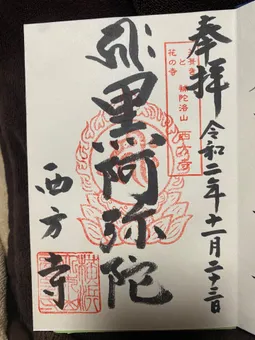 奉拝
令和二年十一月二十三日
と
花の寺
補陀洛山
西方寺
黒阿弥陀
西方寺